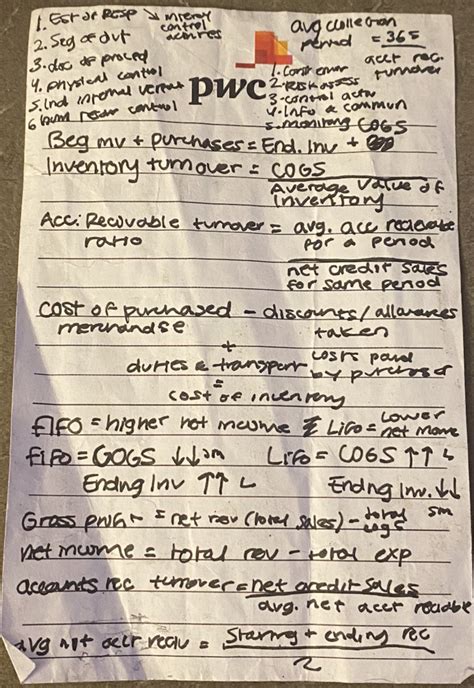 1. Est of Resp
2. Seg of dut
3. doc of proced
4. physical control
5. Ind internal
6. control
internal control
avg collection period = 365
acct rec. turnover
pwc
1. Cont envr
2. Risk assess
3. control
4. Info & commun
5. monitoring
Beg inv + purchases = End. Inv + COGS
Inventory turnover = COGS
Average Value of Inventory
Acc. Recievable turnover ratio = avg. acc recievable for a period
net credit sales for same period
cost of purchased merchandise - discounts/allowances taken
+
duties & transport costs paid by purchaser
=
cost of inventory
FIFO = higher net income & LIFO = Lower net income
FIFO = COGS ↓↓ sm
LIFO = COGS ↑↑ L
Ending Inv ↑↑ L
Ending Inv. ↓↓ sm
Gross profit = net rev (total sales) - total cogs
net income = total rev - total exp
accounts rec turnover = net credit sales
avg. net acct recievable
avg net acct reciv = Starting + ending rec
2